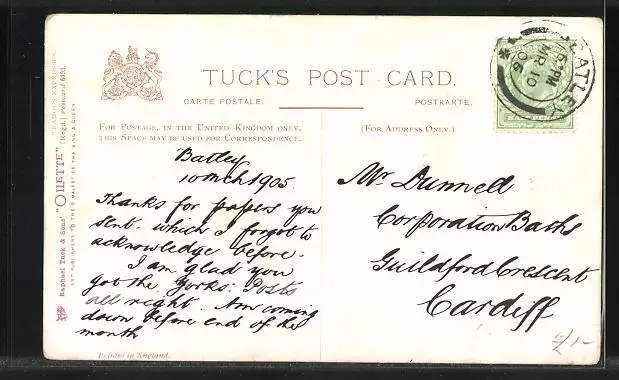 TUCK'S POST CARD.
CARTE POSTALE.
POSTKARTE.
FOR POSTAGE, IN THE UNITED KINGDOM ONLY,
THIS SPACE MAY BE USED FOR CORRESPONDENCE.
(FOR ADDRESS ONLY.)
Batley
10 mch 1905.
Thanks for papers you
sent. which I forgot to
acknowledge before.
I am glad you
got the Yorks: Posts
all right. Am coming
down before end of the
month
Printed in England.
Mr Dunnell
Corporation Baths
Guildford Crescent
Cardiff
2/-
BATLEY
5 PM
MR 10
05
HALF PENNY
Raphael Tuck & Sons' "OILETTE" [Regd.] Postcard 6491.
"FAMOUS EXPRESSES."
ART PUBLISHERS TO THEIR MAJESTIES THE KING & QUEEN